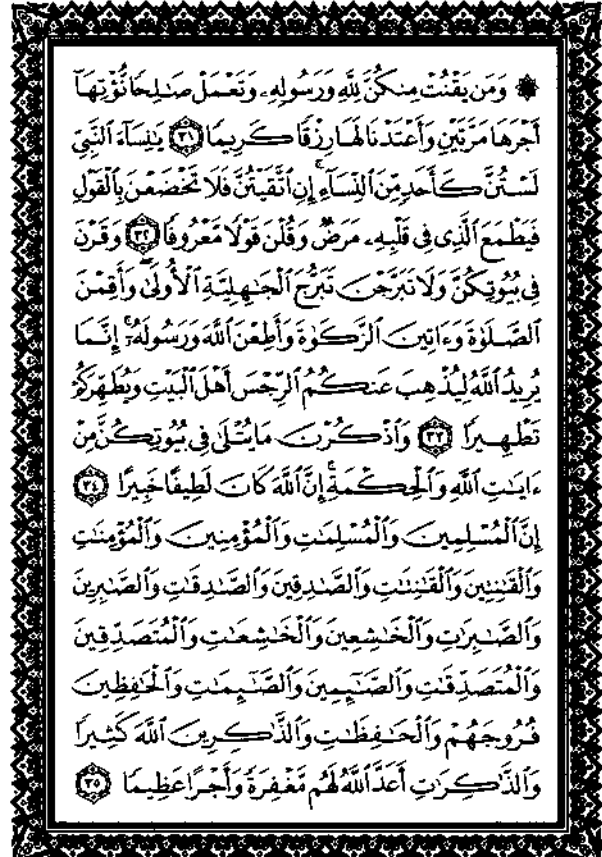 ۞ وَمَن يَقْنُتْ مِنكُنَّ لِلَّهِ وَرَسُولِهِۦ وَتَعْمَلْ صَـٰلِحًا نُّؤْتِهَآ
أَجْرَهَا مَرَّتَيْنِ وَأَعْتَدْنَا لَهَا رِزْقًا كَرِيمًا ﴿٣١﴾ يَـٰنِسَآءَ ٱلنَّبِىِّ
لَسْتُنَّ كَأَحَدٍ مِّنَ ٱلنِّسَآءِ ۚ إِنِ ٱتَّقَيْتُنَّ فَلَا تَخْضَعْنَ بِٱلْقَوْلِ
فَيَطْمَعَ ٱلَّذِى فِى قَلْبِهِۦ مَرَضٌ وَقُلْنَ قَوْلًا مَّعْرُوفًا ﴿٣٢﴾ وَقَرْنَ
فِى بُيُوتِكُنَّ وَلَا تَبَرَّجْنَ تَبَرُّجَ ٱلْجَـٰهِلِيَّةِ ٱلْأُولَىٰ ۖ وَأَقِمْنَ
ٱلصَّلَوٰةَ وَءَاتِينَ ٱلزَّكَوٰةَ وَأَطِعْنَ ٱللَّهَ وَرَسُولَهُۥٓ ۚ إِنَّمَا
يُرِيدُ ٱللَّهُ لِيُذْهِبَ عَنكُمُ ٱلرِّجْسَ أَهْلَ ٱلْبَيْتِ وَيُطَهِّرَكُمْ
تَطْهِيرًا ﴿٣٣﴾ وَٱذْكُرْنَ مَا يُتْلَىٰ فِى بُيُوتِكُنَّ مِنْ
ءَايَـٰتِ ٱللَّهِ وَٱلْحِكْمَةِ ۚ إِنَّ ٱللَّهَ كَانَ لَطِيفًا خَبِيرًا ﴿٣٤﴾
إِنَّ ٱلْمُسْلِمِينَ وَٱلْمُسْلِمَـٰتِ وَٱلْمُؤْمِنِينَ وَٱلْمُؤْمِنَـٰتِ
وَٱلْقَـٰنِتِينَ وَٱلْقَـٰنِتَـٰتِ وَٱلصَّـٰدِقِينَ وَٱلصَّـٰدِقَـٰتِ وَٱلصَّـٰبِرِينَ
وَٱلصَّـٰبِرَٰتِ وَٱلْخَـٰشِعِينَ وَٱلْخَـٰشِعَـٰتِ وَٱلْمُتَصَدِّقِينَ
وَٱلْمُتَصَدِّقَـٰتِ وَٱلصَّـٰٓئِمِينَ وَٱلصَّـٰٓئِمَـٰتِ وَٱلْحَـٰفِظِينَ
فُرُوجَهُمْ وَٱلْحَـٰفِظَـٰتِ وَٱلذَّٰكِرِينَ ٱللَّهَ كَثِيرًا
وَٱلذَّٰكِرَٰتِ أَعَدَّ ٱللَّهُ لَهُم مَّغْفِرَةً وَأَجْرًا عَظِيمًا ﴿٣٥﴾